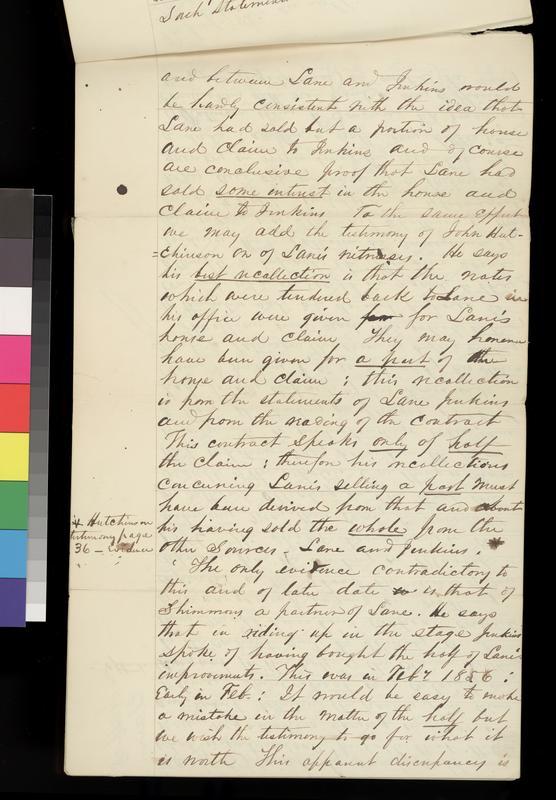 Such Statement
and between Lane and Jenkins would
be hardly consistent with the idea that
Lane had sold but a portion of house
and claim to Jenkins and of course
are conclusive proof that Lane had
sold some interest in the house and
claim to Jenkins To the same effect
we may add the testimony of John Hut-
=chinson on of Lane's witnesses. He says
his best recollection is that the notes
which were tendered back to Lane in
his office were given for Lane's
house and claim They may however
have been given for a part of the
house and claim ; this recollection
is from the statements of Lane Jenkins
and from the reading of the contract
This contract speaks only of half
the claim ; therefore his recollections
concerning Lane's selling a part must
have been derived from that and about
his having sold the whole from the
other sources - Lane and Jenkins. *
* Hutchinson
testimony page
36 - Evidence
The only evidence contradictory to
this and of late date is that of
Shimmons a partner of Lane. He says
that in riding up in the stage Jenkins
spoke of having bought the half of Lane's
improvements. This was in Feby 1856 ;
Early in Feb. : It would be easy to make
a mistake in the matter of the half but
we wish the testimony to go for what it
is worth This apparent discrepancy is